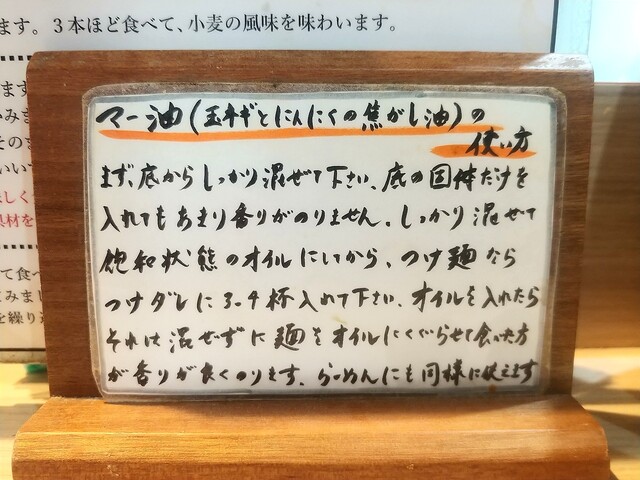 ます。３本ほど食べて、小麦の風味を味わいます。
マー油(玉ネギとにんにくの焦がし油)の
使い方
まず、底からしっかり混ぜて下さい、底の固体だけを
入れてもあまり香りがのりません。しっかり混ぜて
飽和状態のオイルにしてから、つけ麺なら
つけダレに3〜4杯入れて下さい。オイルを入れたら
それは混ぜずに麺をオイルにくぐらせて食べた方
が香りが良くのります。らーめんにも同様に使えます